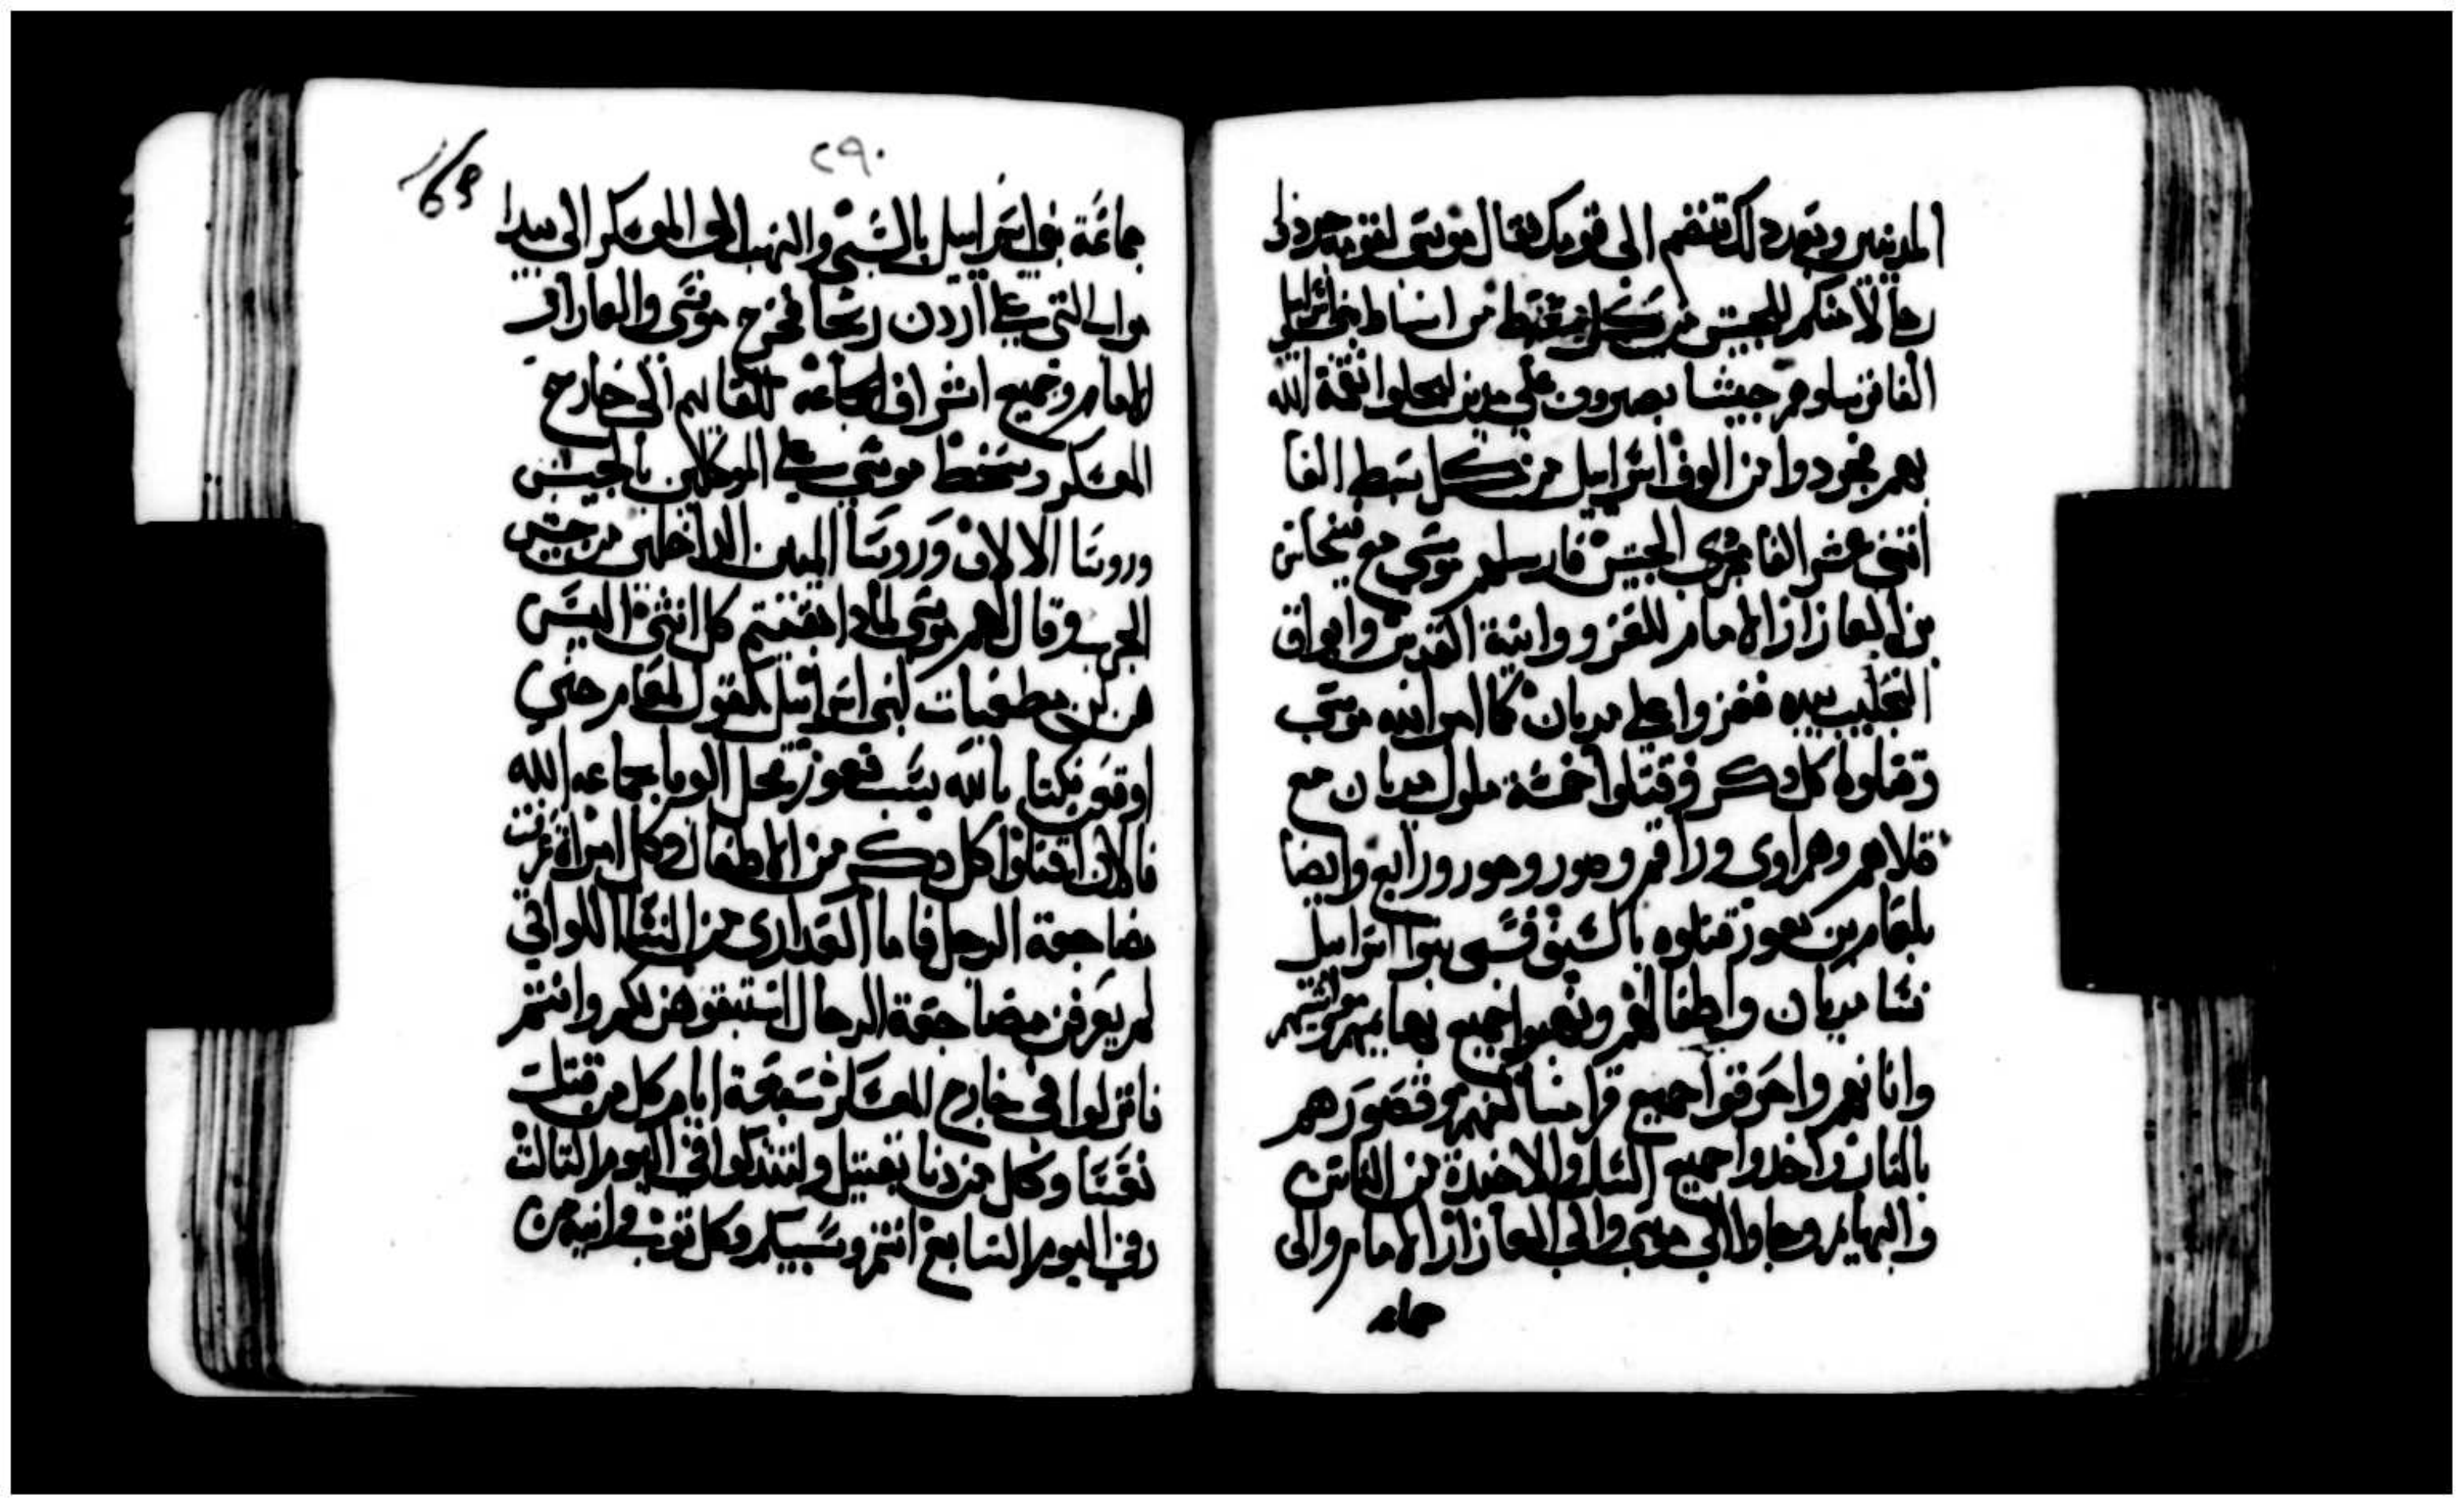 المدينين وبعد دلك تنضم الى قومك فقال موسى لقومه جردوا
رجالا منكم للجيش من كل سبط من اسباط بني اسرائيل
الفا فرساوهم جيشا يصيرون على مدين ليحلوا نقمة الله
بهم فجردوا من الوف اسراييل من كل سبط الفا
اثني عشر الفا مجردي الجيش فارسلهم موسى مع فينحاس
بن العازار الامام للغزو وانية القدس وابواق
التجليب بيده فغزوا على مديان كما امر الله موسى
وقتلوا كل دكر وقتلوا خمسة ملوك مديان مع
قتلاهم وهم اوى وراقم وصور وحور ورابع وايضا
بلعام بن بعور قتلوه بالسيف فسبى بنوا اسراييل
نسا مديان واطفالهم ونهبوا جميع بهايمهم ومواشيهم
واتاتهم واحرقوا جميع قرا مساكنهم وقصورهم
بالنار واخدوا جميع السلب والاخيدة من الناس
والبهايم وجاوا الى موسى والى العازار الامام والى
جماعة
٢٩٠
169
جماعة بني اسراييل بالسبي والنهب الى المعسكر الى بيدا
مواب التي على اردن ريحا فخرج موسى والعازار
الامام وجميع اشراف الجماعة للقايهم الى خارج
المعسكر وسخط موسى على الموكلين بالجيش
وروسا الالاف وروسا الميين الداخلين من جيش
الحرب وقال لهم موسى لمادا ابقيتم كل انثى اليس
هن كن مطغيات لبني اسراييل كقول بلعام حتى
اوقعن نكتا بالله بسبب فعور فحل الوبا بجماعه الله
فالان اقتلوا كل دكر من الاطفال وكل امراة عرفت
مضاجعة الرجل فاما العدارى من النسا اللواتي
لم يعرفن مضاجعة الرجال استبقوهن لكم وانتم
فانزلوا في خارج المعسكر سبعة ايام كل من قتل
نفسا وكل من دنا بقتيل ولتتدكوا في اليوم التالت
وفي اليوم السابع انتم وسبيكم وكل توب وانية من